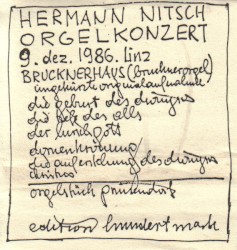 HERMANN NITSCH
ORGELKONZERT
9. dez. 1986. linz
BRUCKNERHAUS (brucknerorgel)
ungekürzte originalaufnahme
die geburt des dionysos
die tiefe des alls
der
dornenkrönung
die auferstehung des dionysos
christos
orgelstück prinzendorf
edition hundertmark